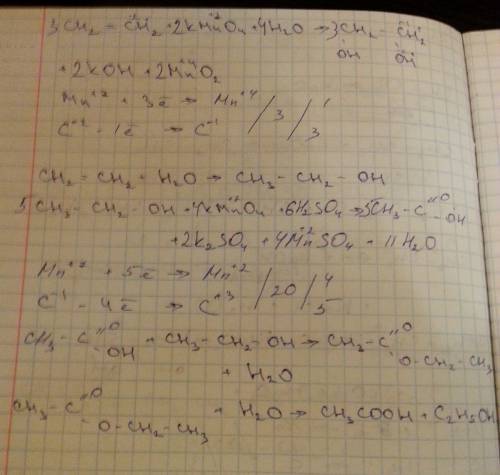 3CH₂ = CH₂ + 2KMnO₄ + 4H₂O → 3CH₂ - CH₂
OH OH
+ 2KOH + 2MnO₂
Mn⁺⁷ + 3ē → Mn⁺⁴ / 3 / 1
C⁻² - 1ē → C⁻¹ 3
CH₂ = CH₂ + H₂O → CH₃ - CH₂ - OH
5CH₃ - CH₂ - OH + 4KMnO₄ + 6H₂SO₄ → 5CH₃ - C =O - OH
+ 2K₂SO₄ + 4MnSO₄ + 11H₂O
Mn⁺⁷ + 5ē → Mn⁺² / 20 / 4
C⁻¹ - 4ē → C⁺³ 5
CH₃ - C =O - OH + CH₃ - CH₂ - OH → CH₃ - C =O
O - CH₂ - CH₃
+ H₂O
CH₃ - C =O + H₂O → CH₃COOH + C₂H₅OH
O - CH₂ - CH₃